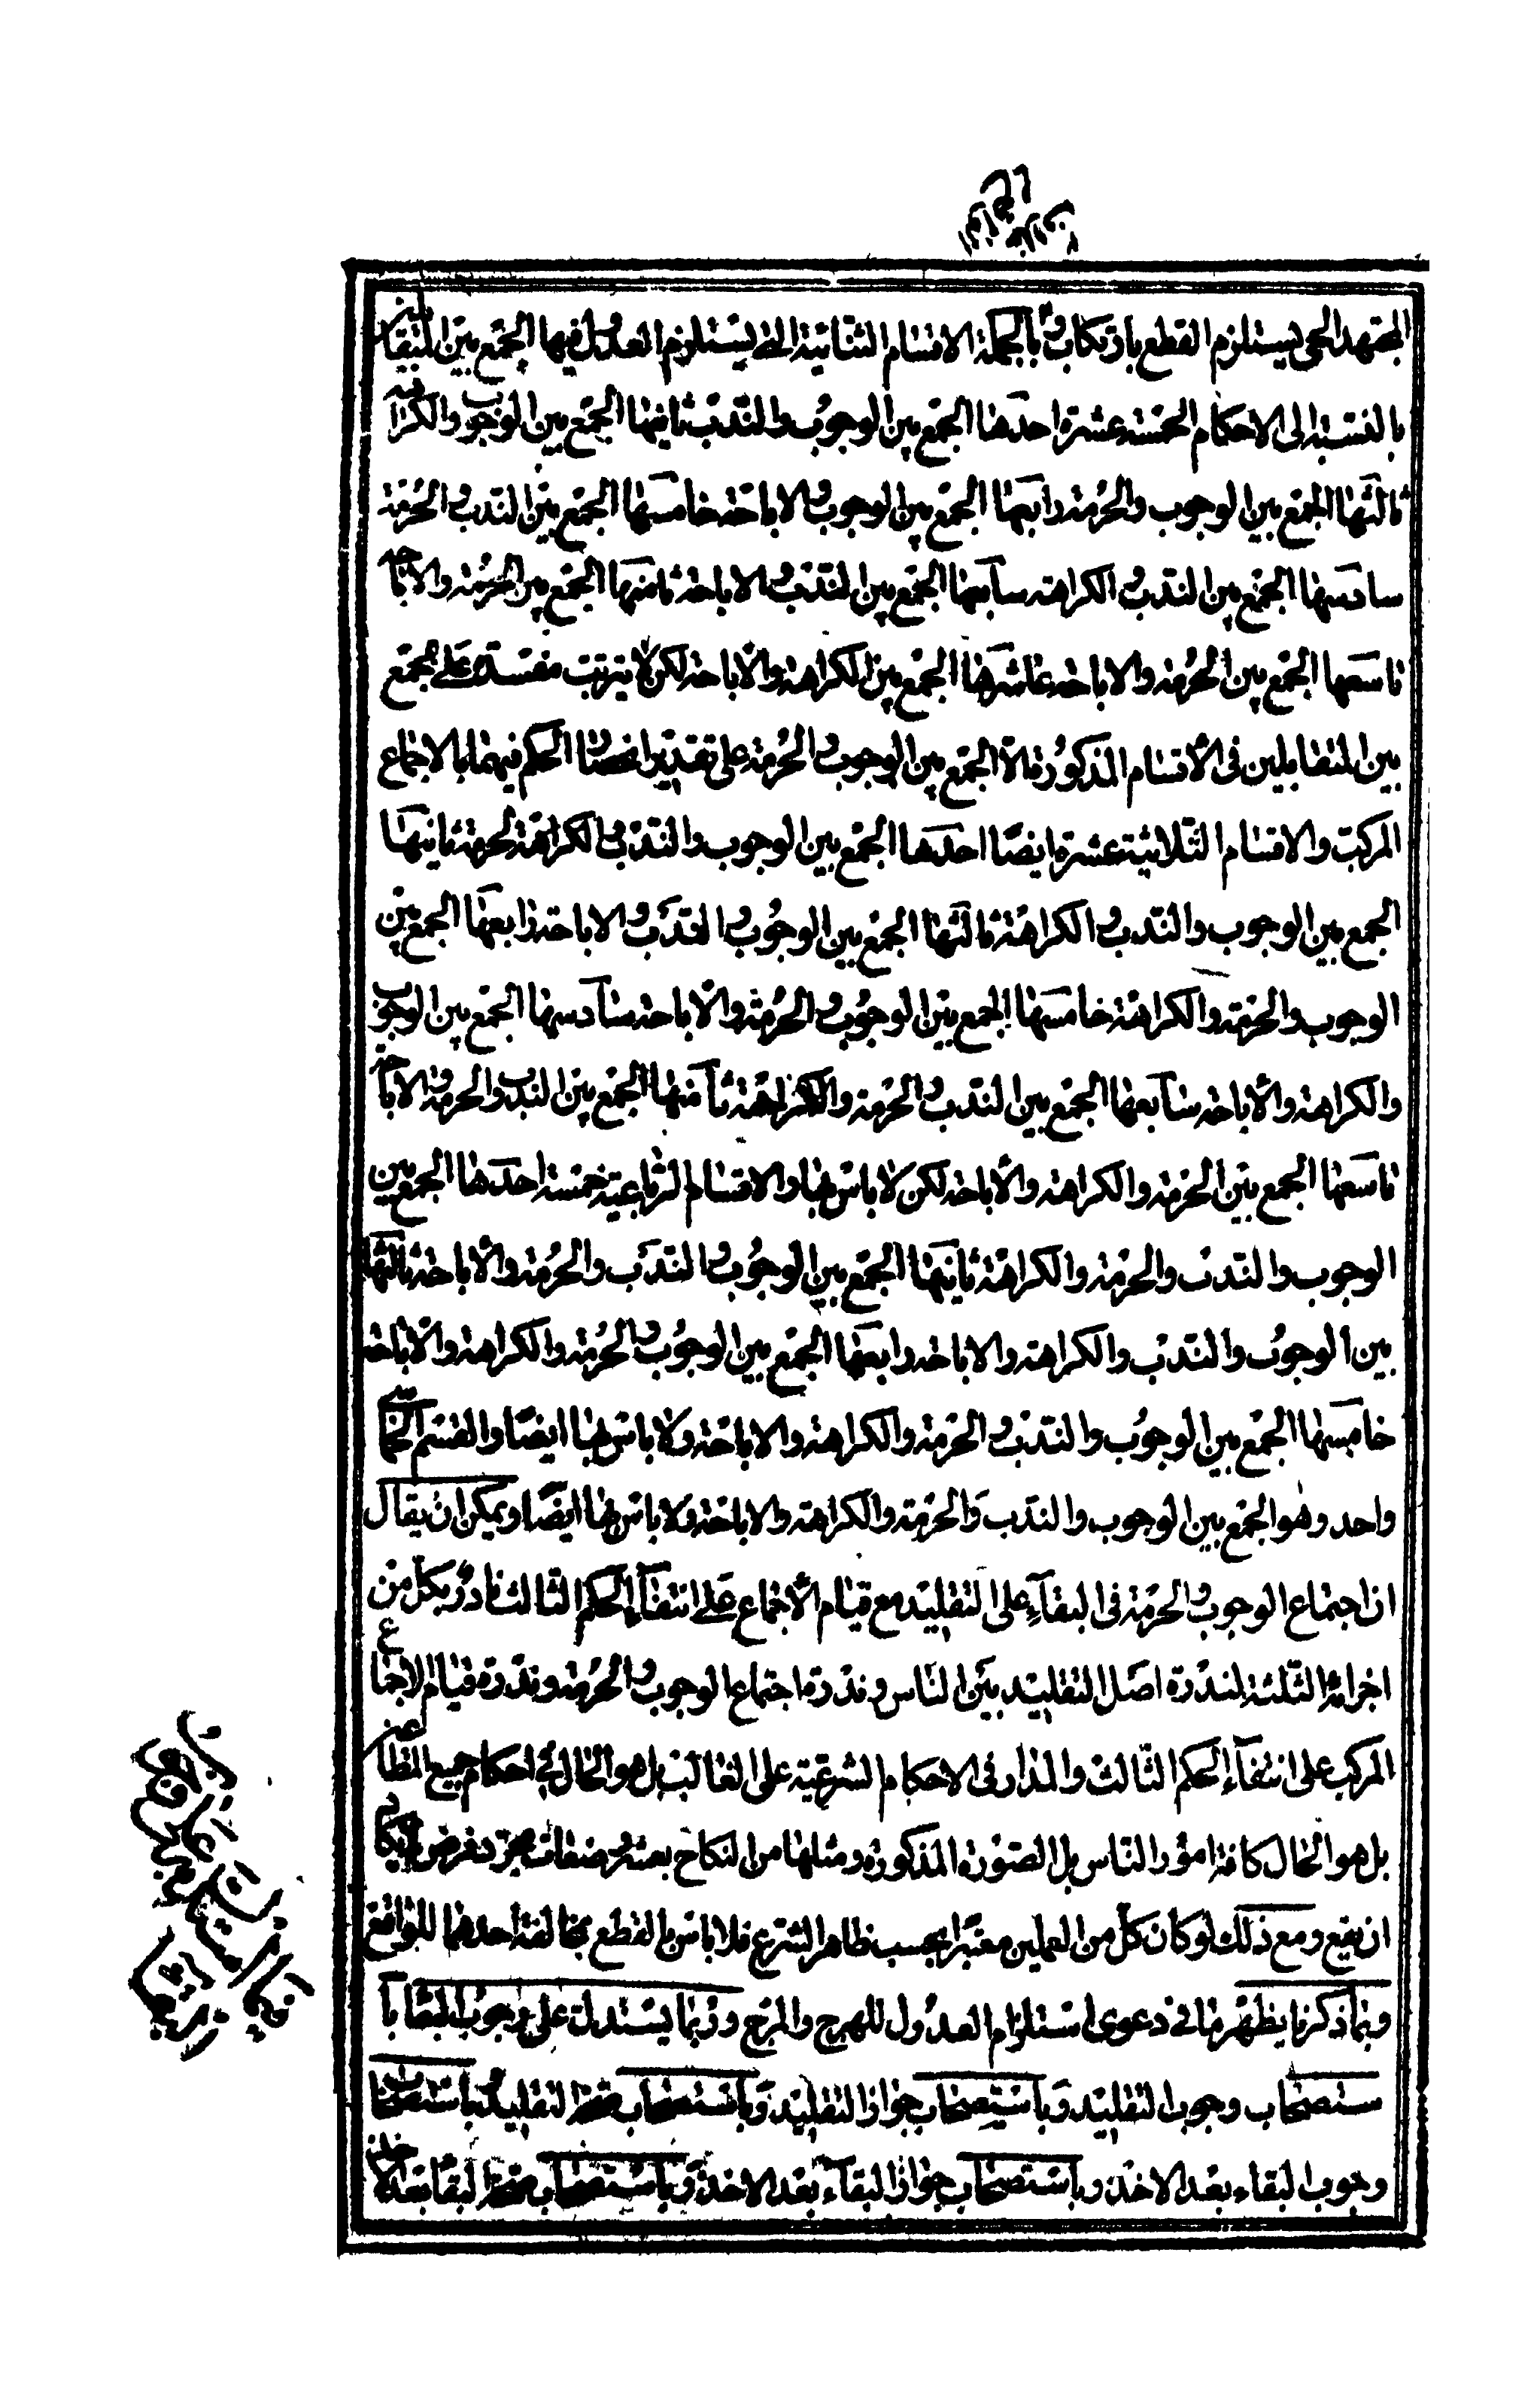 المجتهد الحى يستلزم القطع بارتكاب و بالجملة الاقسام الثنائية التى يستلزم العدول فيها الجمع بين المتقابلين
بالنسبة الى الاحكام الخمسة عشرة احدها الجمع بين الوجوب والندب ثانيها الجمع بين الوجوب والكراهة
ثالثها الجمع بين الوجوب والحرمة رابعها الجمع بين الوجوب والاباحة خامسها الجمع بين الندب والحرمة
سادسها الجمع بين الندب والكراهة سابعها الجمع بين الندب والاباحة ثامنها الجمع بين الحرمة والاباحة
تاسعها الجمع بين الحرمة والاباحة عاشرها الجمع بين الكراهة والاباحة لكن لا يترتب مفسدة على الجمع
بين المتقابلين فى الاقسام المذكورة الا الجمع بين الوجوب والحرمة على تقدير انحصار الحكم فيهما بالاجماع
المركب والاقسام الثلاثية عشرة ايضا احدها الجمع بين الوجوب والندب والكراهة الحرمة ثانيها
الجمع بين الوجوب والندب والكراهة ثالثها الجمع بين الوجوب والندب والاباحة رابعها الجمع بين
الوجوب والحرمة والكراهة خامسها الجمع بين الوجوب والحرمة والاباحة سادسها الجمع بين الوجوب
والكراهة والاباحة سابعها الجمع بين الندب والحرمة والكراهة ثامنها الجمع بين الندب والحرمة والاباحة
تاسعها الجمع بين الحرمة والكراهة والاباحة لكن لا باس بها والاقسام الرباعية خمسة احدها الجمع بين
الوجوب والندب والحرمة والكراهة ثانيها الجمع بين الوجوب والندب والحرمة والاباحة ثالثها
بين الوجوب والندب والكراهة والاباحة رابعها الجمع بين الوجوب والحرمة والكراهة والاباحة
خامسها الجمع بين الوجوب والندب والحرمة والكراهة والاباحة ولا باس بها ايضا والقسم الخماسى
واحد وهو الجمع بين الوجوب والندب والحرمة والكراهة والاباحة ولا باس بها ايضا ويمكن ان يقال
ان اجتماع الوجوب والحرمة فى البقاء على التقليد مع قيام الاجماع على انتفاء الحكم الثالث نادر بكل من
اجزائه الثلثة لندرة اصل التقليد بين الناس وندرة اجتماع الوجوب والحرمة وندرة قيام الاجماع
المركب على انتفاء الحكم الثالث والمدار فى الاحكام الشرعية على الغالب بل هو الحال فى احكام جميع المطاعين
بل هو الحال كافة امور الناس بل الصورة المذكورة ومثلها من النكاح بعشر رضعات مجرد فرض
ان يقع ومع ذلك لو كان كل من العملين معتبرا بحسب ظاهر الشرع فلا باس بالقطع بمخالفة احدهما للواقع
وبما ذكرنا يظهر ما فى دعوى استلزام العدول للهرج والمرج وربما يستدل على وجوب البقاء با
ستصحاب وجوب التقليد وباستصحاب جواز التقليد وباستصحاب التقليد وباستصحاب
وجوب البقاء بعد الاخذ وباستصحاب جواز البقاء بعد الاخذ وباستصحاب البقاء بعد الاخذ